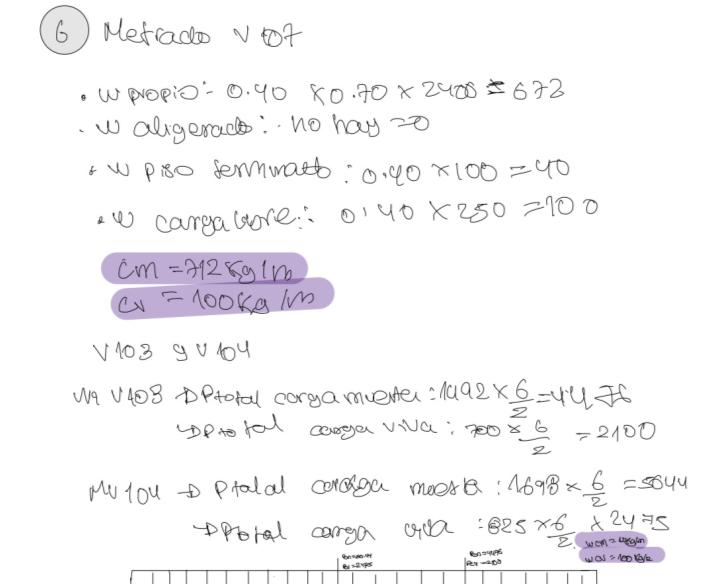 6 Metrado V 107
• W propio: 0.40 x 0.70 x 2400 = 672
• W aligerado: no hay = 0
• W piso terminado: 0.40 x 100 = 40
• W carga libre: 0.40 x 250 = 100
cm = 712 Kg/m
cv = 100 Kg/m
V103 y V104
V103 → Ptotal carga muerta: 1492 x 6/2 = 4476
→ Ptotal carga viva: 700 x 6/2 = 2100
V104 → Ptotal carga muerta: 1698 x 6/2 = 5044
→ Ptotal carga viva: 825 x 6/2 x 2475
wcv = 100 Kg/m